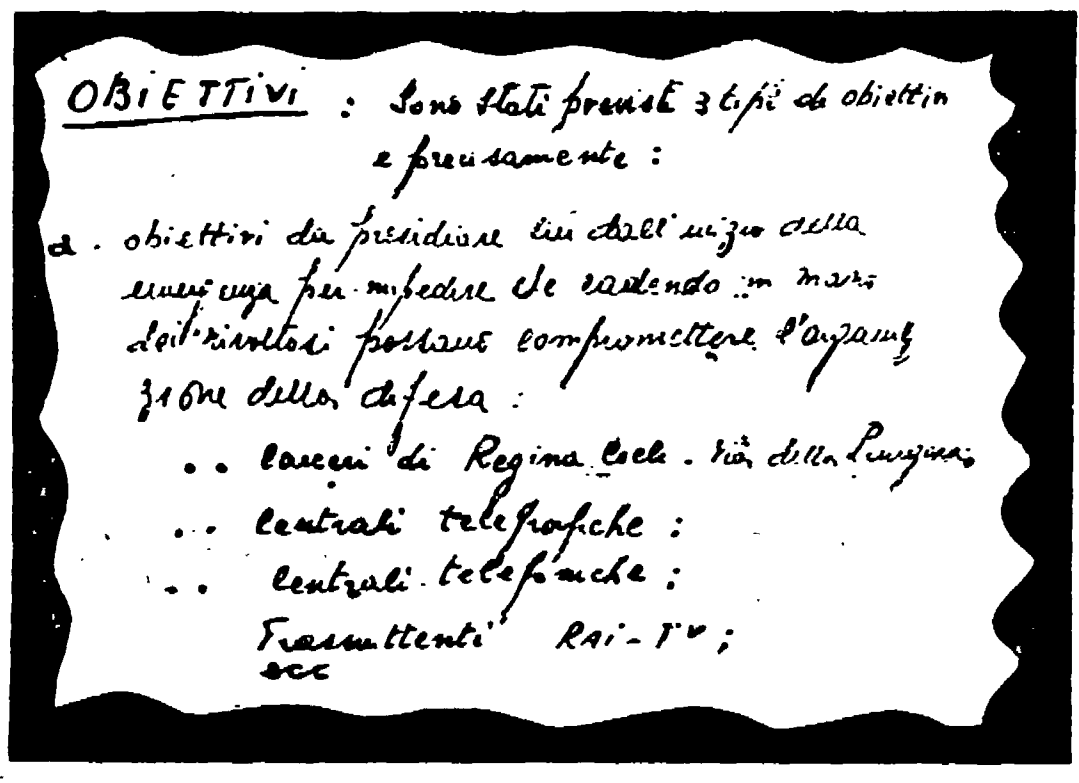 OBiETTiVi : Sono stati previsti 3 tipi di obiettivi
e precisamente :
a. obiettivi da presidiare sin dall'inizio della
emergenza per impedire che cadendo in mano
dei rivoltosi possano compromettere l'organiz
zione della difesa :
.. Carceri di Regina Coeli - Via della Lungara;
.. Centrali telegrafiche ;
.. Centrali telefoniche ;
Trasmittenti RAi-TV ;
ecc